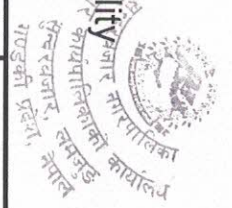 lity
सुन्दरबजार नगरपालिका
नगर कार्यपालिकाको कार्यालय
सुन्दरबजार, लमजुङ
गण्डकी प्रदेश, नेपाल